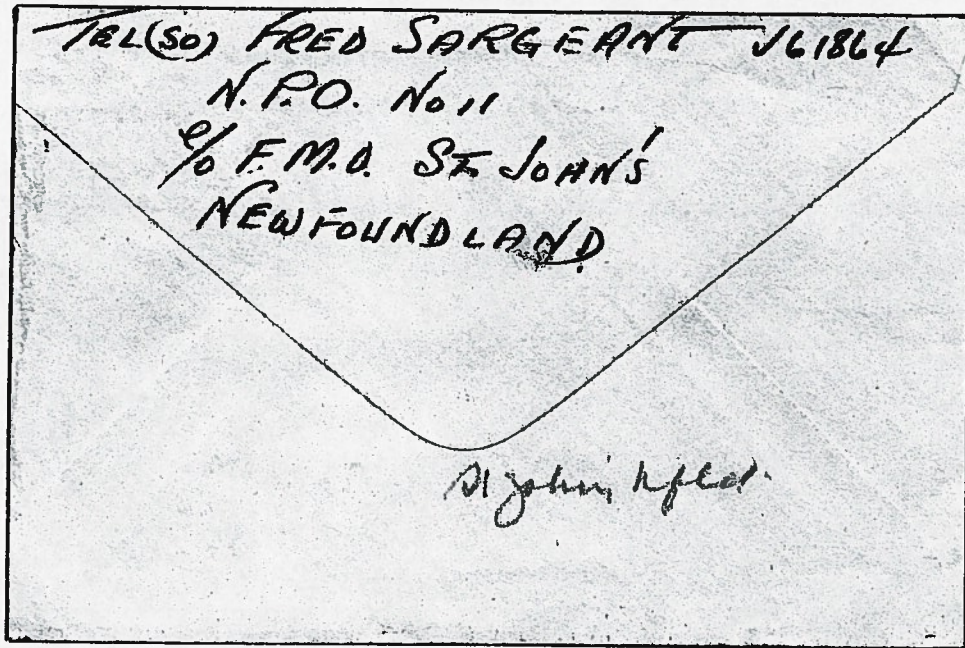 TEL(SO) FRED SARGEANT V61864
N.P.O. No 11
c/o F.M.O. ST JOHN'S
NEWFOUNDLAND
St John's Nfld.